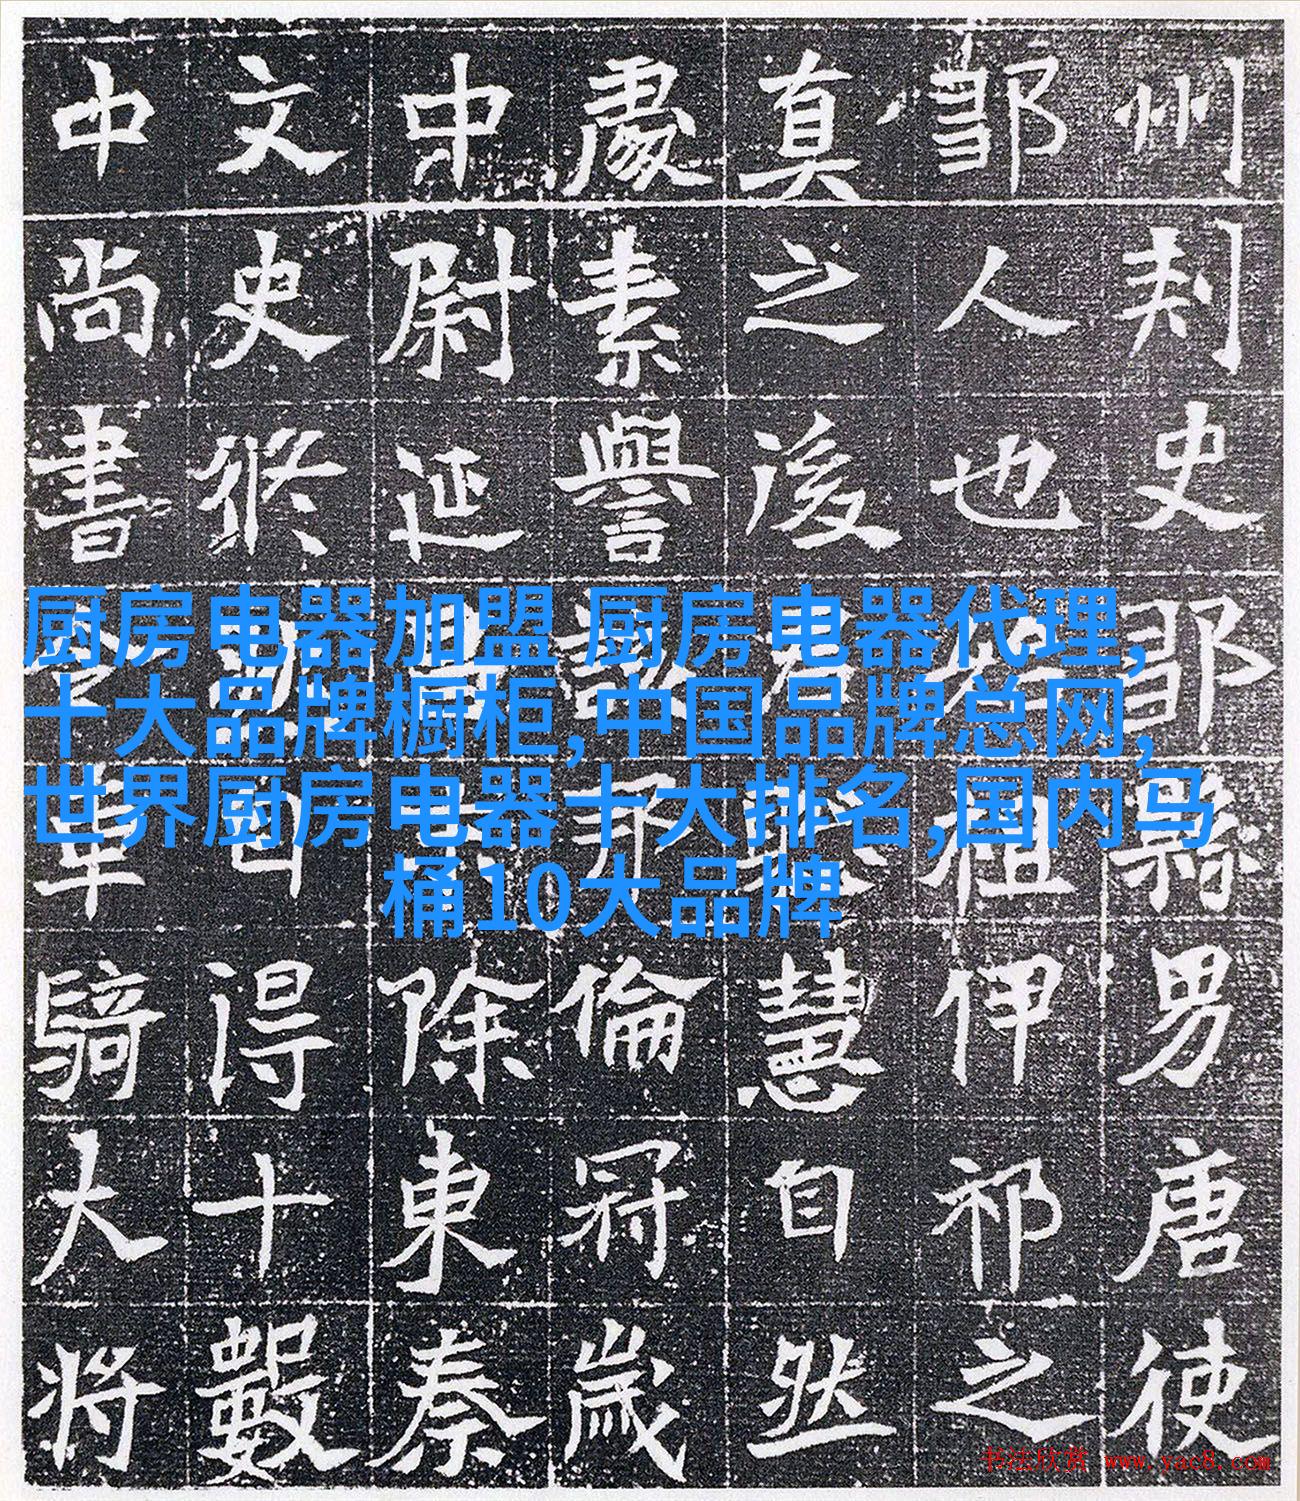 州刾史縣男唐使
人也祖伊祁之
真之後慧自然
處素譽倫冠歲
中尉延除東秦
文史修得十數
中尚書騎大將
厨房电器加盟,厨房电器代理,
十大品牌橱柜,中国品牌总网,
世界厨房电器十大排名,国内马
桶10大品牌
书法欣赏 www.yac8.com